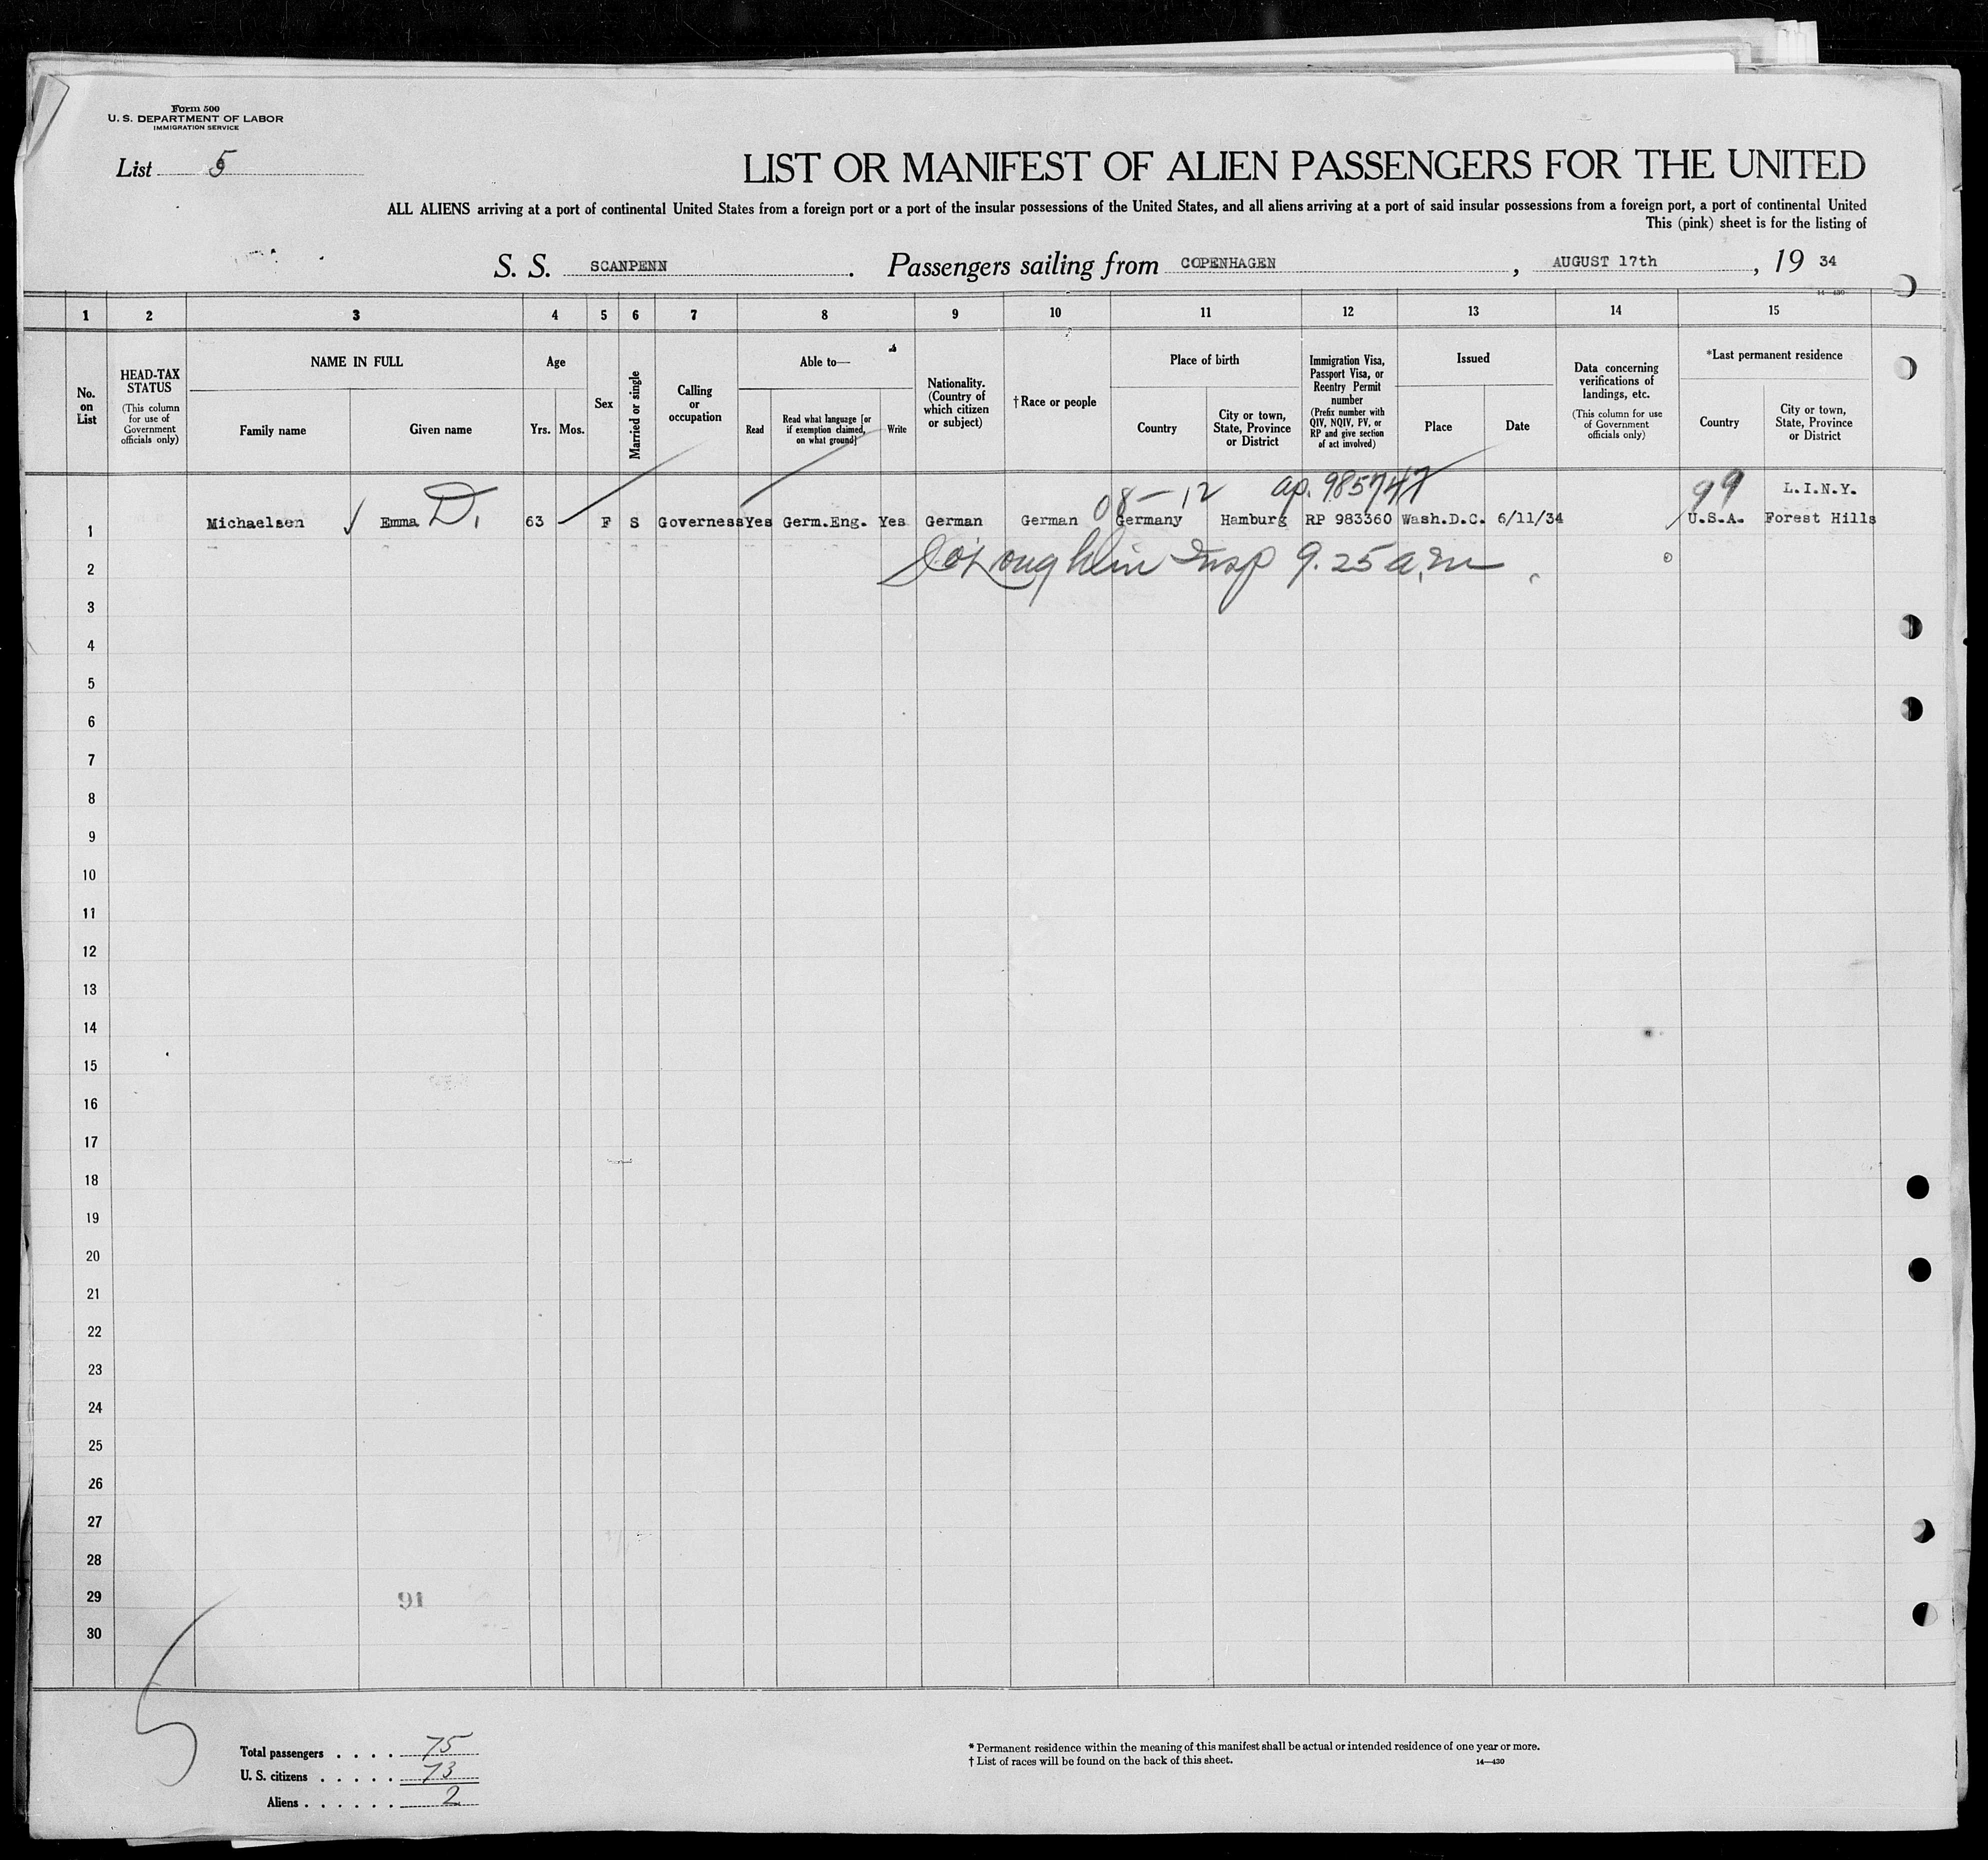 Form 500
U. S. DEPARTMENT OF LABOR
IMMIGRATION SERVICE
List 5
LIST OR MANIFEST OF ALIEN PASSENGERS FOR THE UNITED
ALL ALIENS arriving at a port of continental United States from a foreign port or a port of the insular possessions of the United States, and all aliens arriving at a port of said insular possessions from a foreign port, a port of continental United
This (pink) sheet is for the listing of
S. S. SCANPENN. Passengers sailing from COPENHAGEN, AUGUST 17th, 19 34
14—430
1 2 3 4 5 6 7 8 9 10 11 12 13 14 15
No. on List
HEAD-TAX STATUS (This column for use of Government officials only)
NAME IN FULL
Family name Given name
Age
Yrs. Mos.
Sex
Married or single
Calling or occupation
Able to—
Read Read what language [or if exemption claimed, on what ground] Write
Nationality. (Country of which citizen or subject)
†Race or people
Place of birth
Country City or town, State, Province or District
Immigration Visa, Passport Visa, or Reentry Permit number (Prefix number with QIV, NQIV, PV, or RP and give section of act involved)
Issued
Place Date
Data concerning verifications of landings, etc. (This column for use of Government officials only)
*Last permanent residence
Country City or town, State, Province or District
08-12 ap. 985747 99 L.I.N.Y.
1 Michaelsen ✓ Emma D. 63 F S Governess Yes Germ.Eng. Yes German German Germany Hamburg RP 983360 Wash.D.C. 6/11/34 U.S.A. Forest Hills
2 O'Loughlin Insp 9.25 a.m
3
4
5
6
7
8
9
10
11
12
13
14
15
16
17
18
19
20
21
22
23
24
25
26
27
28
29 91
30
5
Total passengers . . . . 75
U. S. citizens . . . . . 73
Aliens . . . . . . 2
* Permanent residence within the meaning of this manifest shall be actual or intended residence of one year or more.
† List of races will be found on the back of this sheet. 14—430